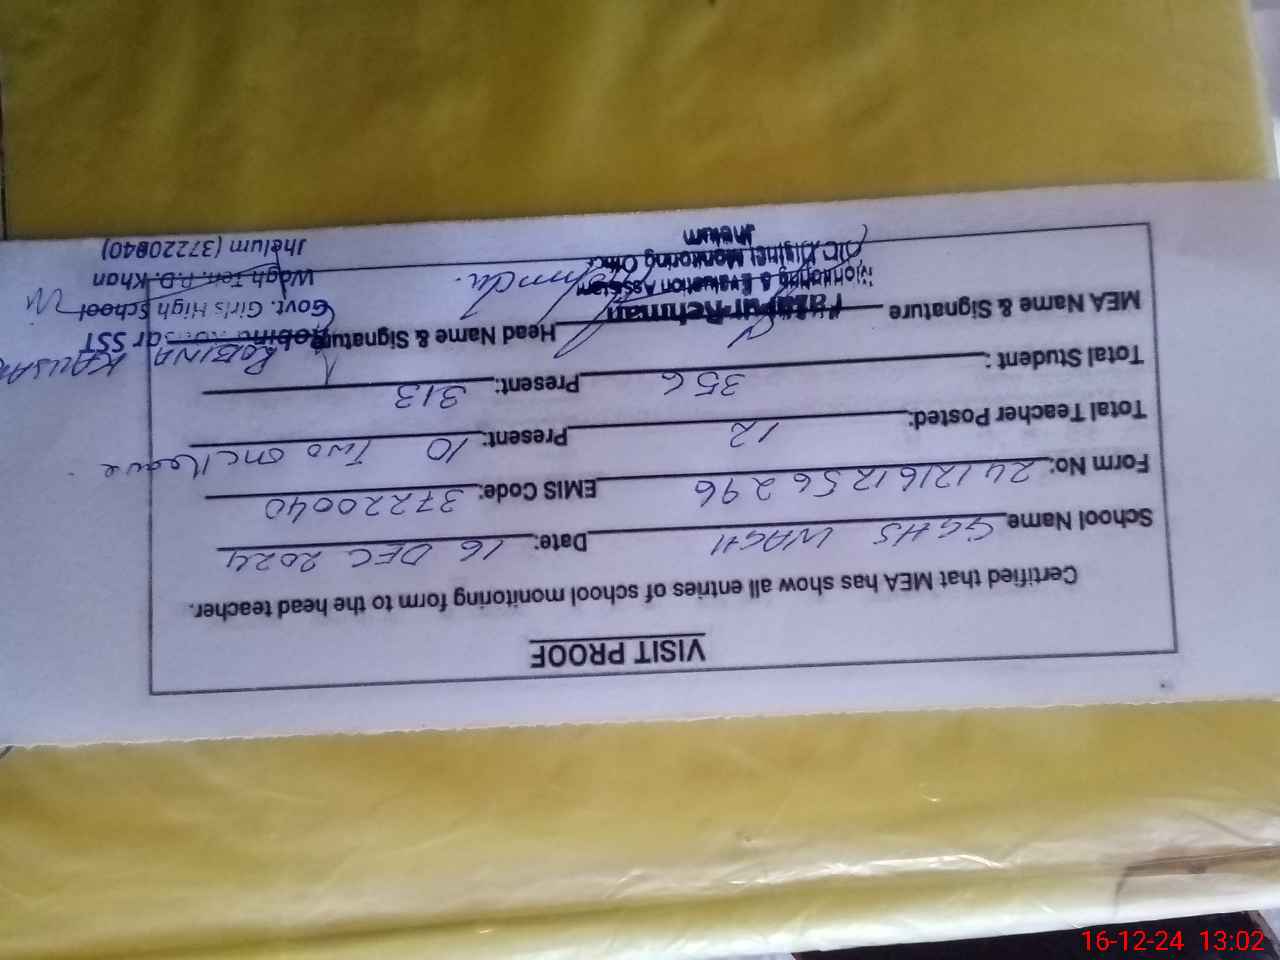 VISIT PROOF
Certified that MEA has show all entries of school monitoring form to the head teacher.
School Name GGHS WAGH Date: 16 DEC 2024
Form No: 24121612 56 296 EMIS Code: 37220040
Total Teacher Posted: 12 Present: 10 Two on leave
Total Student : 356 Present: 313
ROBINA KAUSAR
MEA Name & Signature Head Name & Signature Robina Kausar SST
Monitoring & Evaluation Assistant
Govt. Girls High School
O/O District Monitoring Officer
Wagh Teh. P.D. Khan
Jhelum
Jhelum (37220040)
16-12-24 13:02